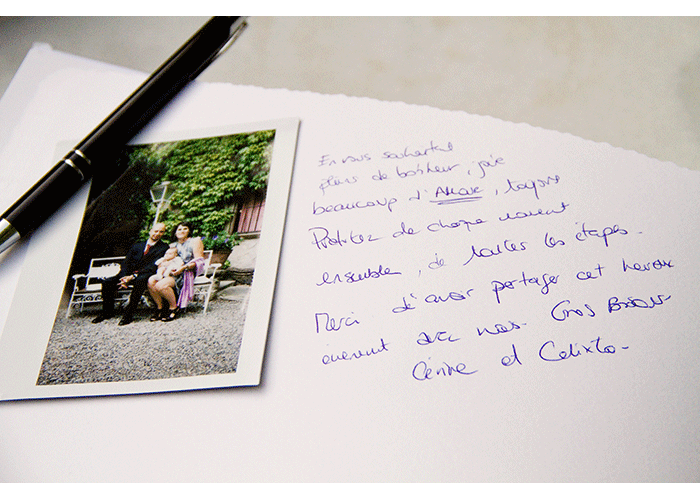 En vous souhaitant
pleins de bonheur, joie
beaucoup d'Amour, toujours
Profitez de chaque moment
ensemble, de toutes les étapes.
Merci d'avoir partager cet heureux
évènement avec nous. Gros Bisous
et Calixto.